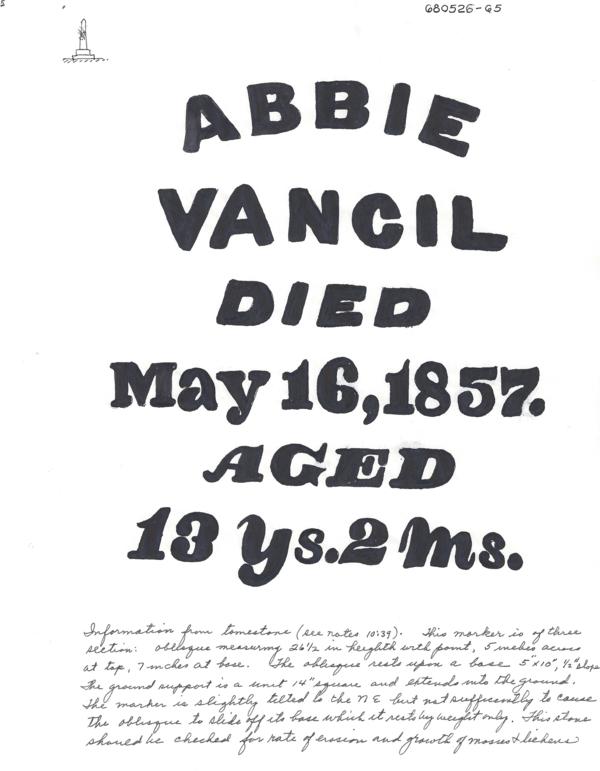 680526-G5
ABBIE
VANCIL
DIED
May 16, 1857.
AGED
13 Ys. 2 Ms.
Information from tomestone (see notes 10:39). This marker is of three
section: oblisque measuring 26 1/2 in heighth with point, 5 inches across
at top, 7 inches at base. The oblisque rests upon a base 5"x10", 1/2" slope
The ground support is a unit 14" square and extends into the ground.
The marker is slightly tilted to the NE but not sufficiently to cause
the oblisque to slide off its base which it rests by weight only. This stone
should be checked for rate of erosion and growth of mosses & lichens